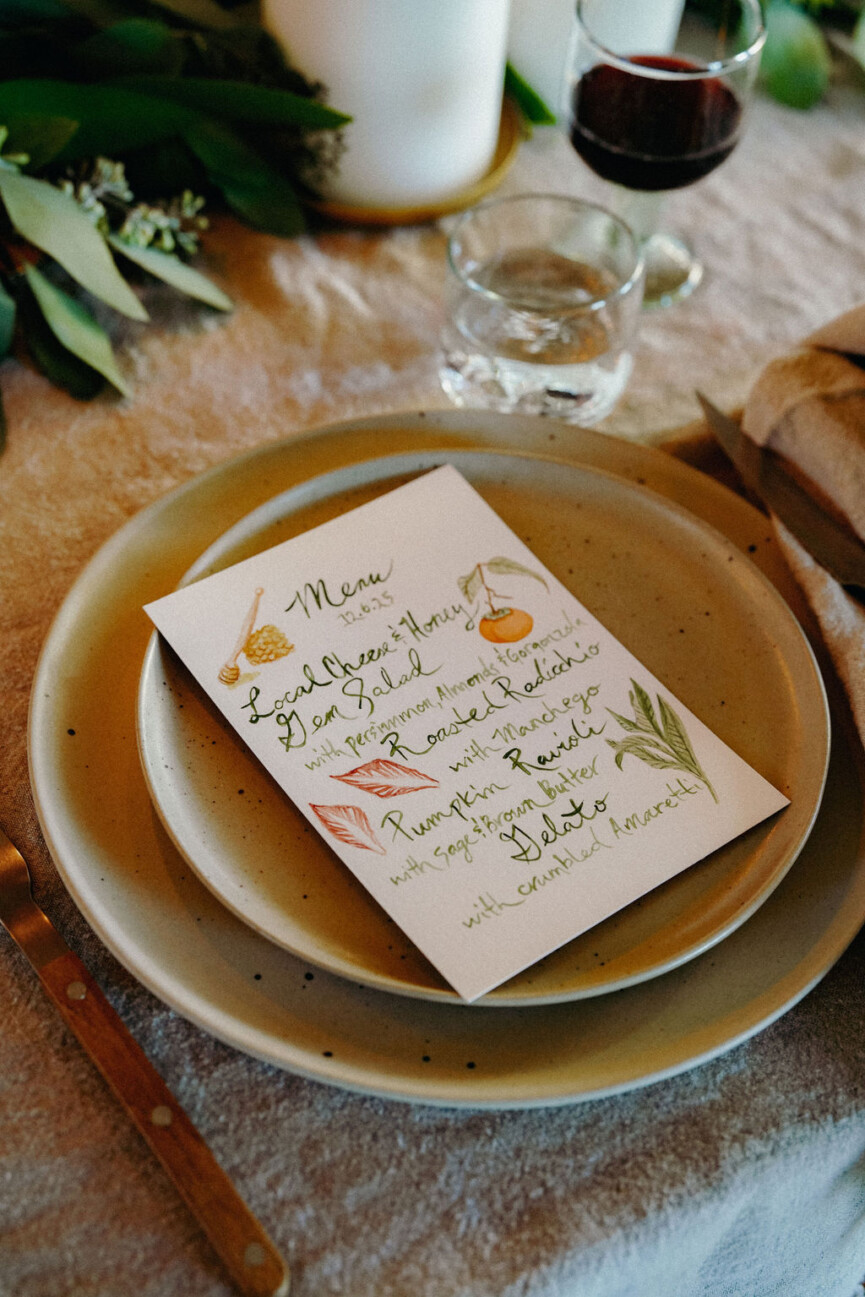 Menu
12.6.25
Local Cheese & Honey
Gem Salad
with persimmon, Almonds & Gorgonzola
Roasted Radicchio
with Manchego
Pumpkin Ravioli
with Sage & Brown Butter
Gelato
with crumbled Amaretti